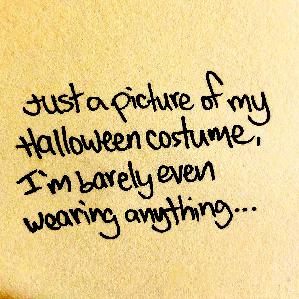 Just a picture of my
Halloween costume,
I'm barely even
wearing anything...